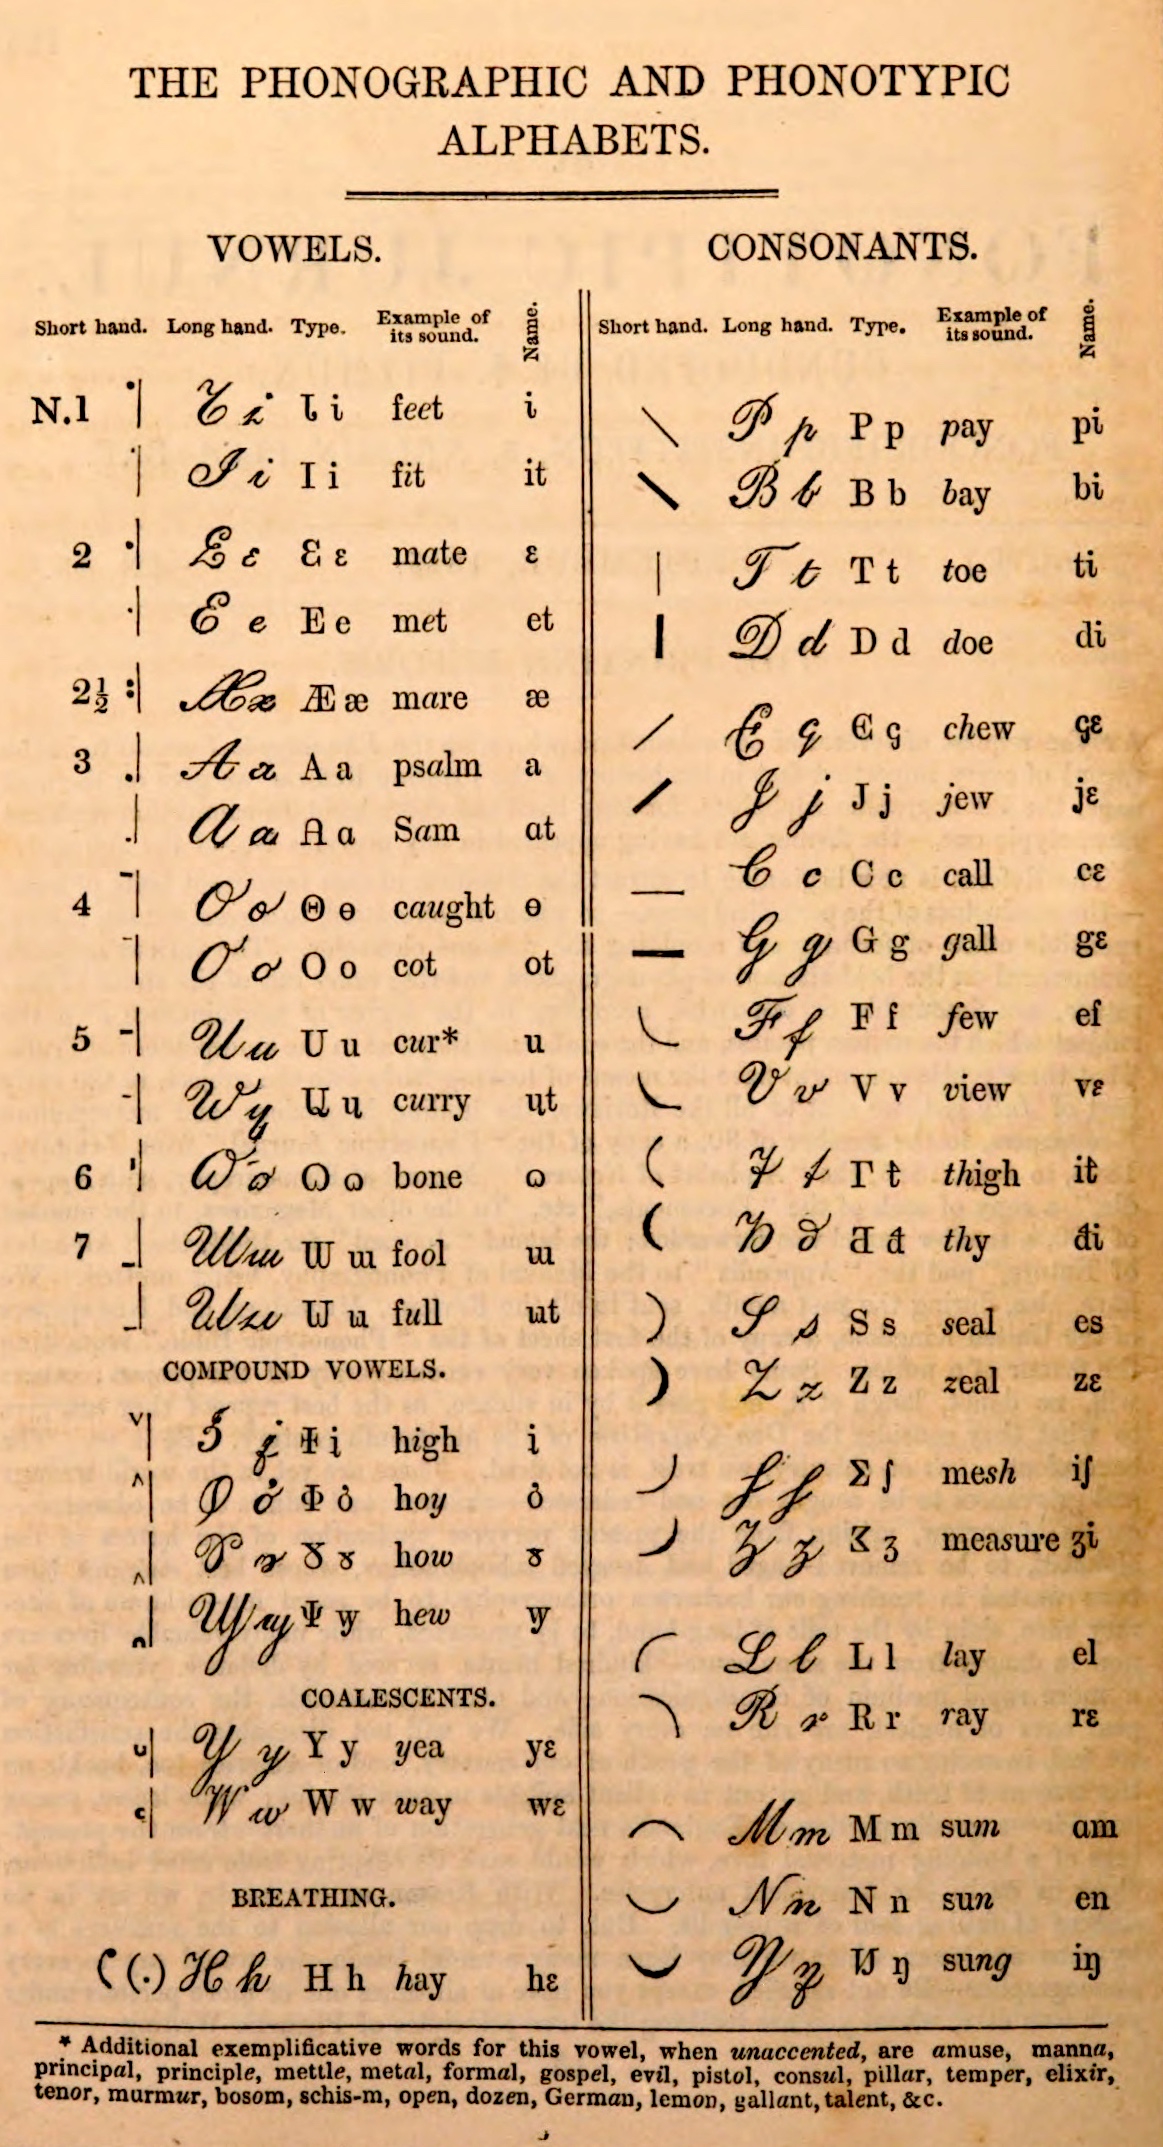 THE PHONOGRAPHIC AND PHONOTYPIC
ALPHABETS.
VOWELS.
Short hand. Long hand. Type. Example of its sound. Name.
N.1 I i feet i
I i fit it
2 Ɛ ɛ mate ɛ
E e met et
2½ Æ æ mare æ
3 A a psalm a
Ɑ ɑ Sam ɑt
4 Ɵ ɵ caught ɵ
O o cot ot
5 U u cur* u
curry
6 bone
7 fool
full
COMPOUND VOWELS.
high
hoy
how ȣ
hew
COALESCENTS.
Y y yea yɛ
W w way wɛ
BREATHING.
(·) H h hay hɛ
CONSONANTS.
Short hand. Long hand. Type. Example of its sound. Name.
P p pay pi
B b bay bi
T t toe ti
D d doe di
chew
J j jew jɛ
C c call cɛ
G g gall gɛ
F f few ef
V v view vɛ
thigh
thy
S s seal es
Z z zeal zɛ
Σ ʃ mesh iʃ
ʒ measure ʒi
L l lay el
R r ray rɛ
M m sum am
N n sun en
ŋ sung iŋ
* Additional exemplificative words for this vowel, when unaccented, are amuse, manna,
principal, principle, mettle, metal, formal, gospel, evil, pistol, consul, pillar, temper, elixir,
tenor, murmur, bosom, schis-m, open, dozen, German, lemon, gallant, talent, &c.